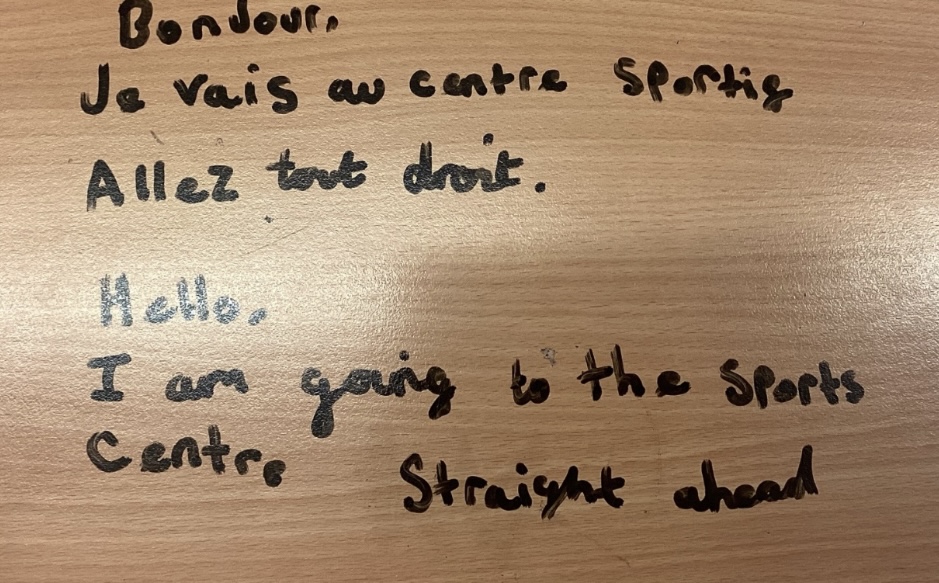 Bonjour.
Je vais au centre sportif
Allez tout droit.
Hello.
I am going to the Sports
Centre
Straight ahead